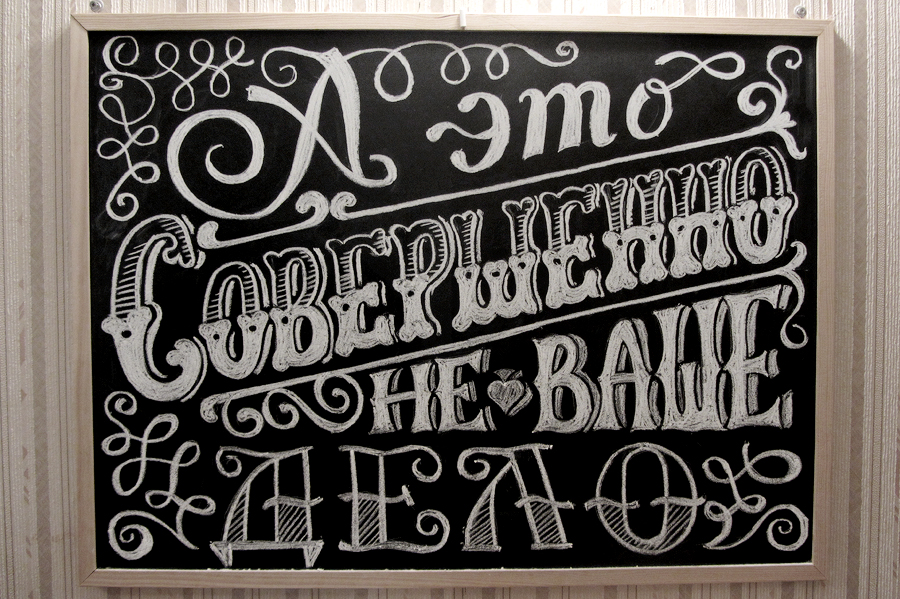 А это
Совершенно
НЕ ВАШЕ
ДЕЛО